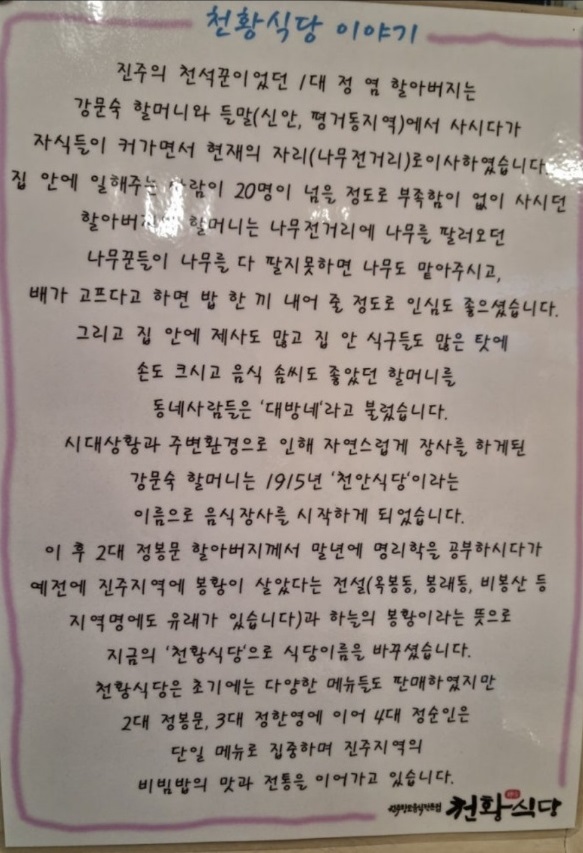 천황식당 이야기
진주의 천석꾼이었던 1대 정 염 할아버지는
강문숙 할머니와 들말(신안, 평거동지역)에서 사시다가
자식들이 커가면서 현재의 자리(나무전거리)로이사하였습니다.
집 안에 일해주는 사람이 20명이 넘을 정도로 부족함이 없이 사시던
할머니는 나무전거리에 나무를 팔러오던
나무꾼들이 나무를 다 팔지못하면 나무도 맡아주시고,
배가 고프다고 하면 밥 한 끼 내어 줄 정도로 인심도 좋으셨습니다.
그리고 집 안에 제사도 많고 집 안 식구들도 많은 탓에
손도 크시고 음식 솜씨도 좋았던 할머니를
동네사람들은 '대방네'라고 불렀습니다.
시대상황과 주변환경으로 인해 자연스럽게 장사를 하게된
강문숙 할머니는 1915년 '천안식당'이라는
이름으로 음식장사를 시작하게 되었습니다.
이 후 2대 정봉문 할아버지께서 말년에 명리학을 공부하시다가
예전에 진주지역에 봉황이 살았다는 전설(옥봉동, 봉래동, 비봉산 등
지역명에도 유래가 있습니다)과 하늘의 봉황이라는 뜻으로
지금의 '천황식당'으로 식당이름을 바꾸셨습니다.
천황식당은 초기에는 다양한 메뉴들도 판매하였지만
2대 정봉문, 3대 정한영에 이어 4대 정순인은
단일 메뉴로 집중하며 진주지역의
비빔밥의 맛과 전통을 이어가고 있습니다.
천황식당